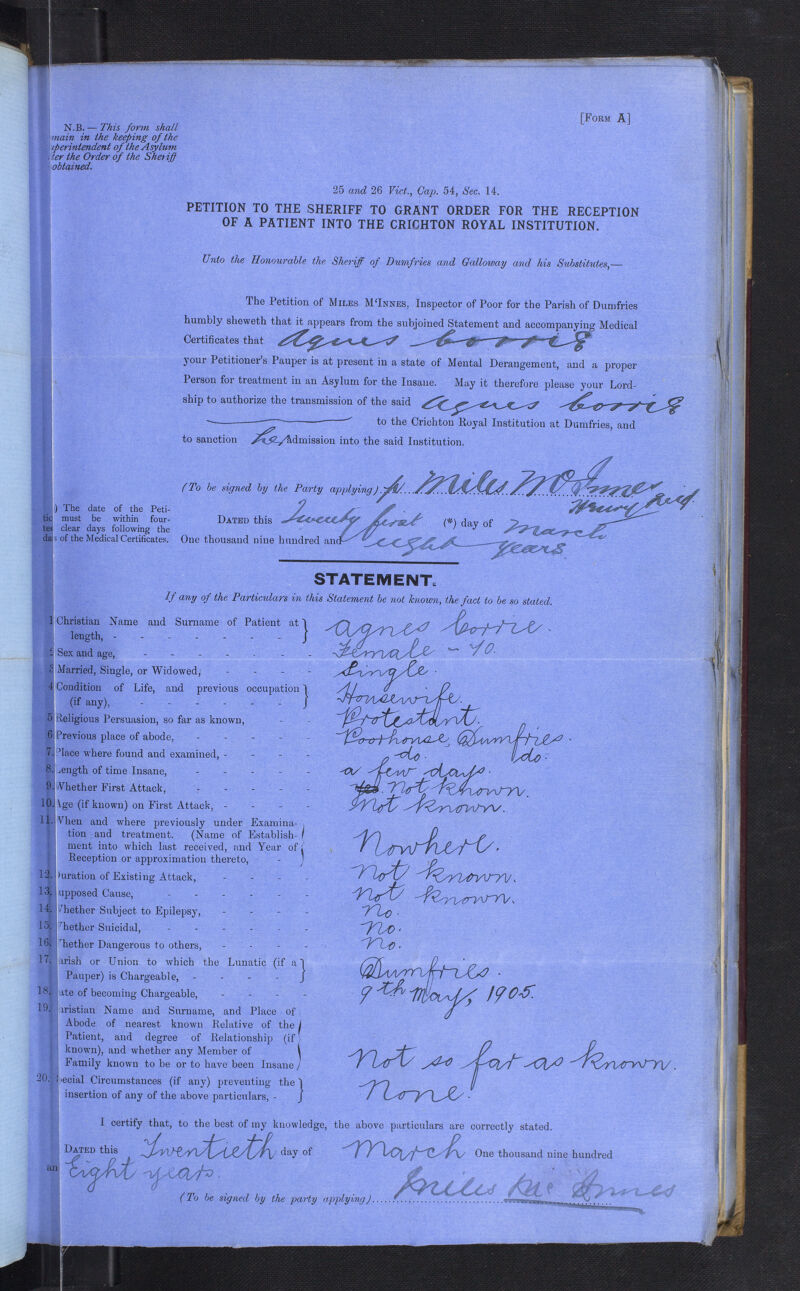 [FORM A]
N.B. — This form shall
main in the keeping of the
perintendent of the Asylum
ter the Order of the Sheriff
obtained.
25 and 26 Vict., Cap. 54, Sec. 14.
PETITION TO THE SHERIFF TO GRANT ORDER FOR THE RECEPTION
OF A PATIENT INTO THE CRICHTON ROYAL INSTITUTION.
Unto the Honourable the Sheriff of Dumfries and Galloway and his Substitutes,—
The Petition of MILES M‘INNES, Inspector of Poor for the Parish of Dumfries
humbly sheweth that it appears from the subjoined Statement and accompanying Medical
Certificates that Agnes Corrie
your Petitioner's Pauper is at present in a state of Mental Derangement, and a proper
Person for treatment in an Asylum for the Insane. May it therefore please your Lord-
ship to authorize the transmission of the said Agnes Corrie
to the Crichton Royal Institution at Dumfries, and
to sanction her Admission into the said Institution.
(To be signed by the Party applying) p Miles McInnes
Henry Reid
) The date of the Peti-
must be within four-
clear days following the
of the Medical Certificates.
DATED this Twenty first (*) day of March
One thousand nine hundred and eight years
STATEMENT.
If any of the Particulars in this Statement be not known, the fact to be so stated.
1 Christian Name and Surname of Patient at
length, - Agnes Corrie.
2 Sex and age, - Female - 70.
3 Married, Single, or Widowed, - Single.
4 Condition of Life, and previous occupation
(if any), - Housewife.
5 Religious Persuasion, so far as known, - Protestant.
6 Previous place of abode, - Poorhouse, Dumfries.
7. Place where found and examined, - do do.
8. Length of time Insane, - a few days.
9. Whether First Attack, - Yes. Not Known.
10. Age (if known) on First Attack, - Not Known.
11. When and where previously under Examina-
tion and treatment. (Name of Establish-
ment into which last received, and Year of
Reception or approximation thereto, - Nowhere.
12. uration of Existing Attack, - Not Known.
13. upposed Cause, - Not Known.
14. hether Subject to Epilepsy, - No.
15. hether Suicidal, - No.
16. hether Dangerous to others, - No.
17. arish or Union to which the Lunatic (if a
Pauper) is Chargeable, - Dumfries.
18. ate of becoming Chargeable, - 9th May, 1905.
19. ristian Name and Surname, and Place of
Abode of nearest known Relative of the
Patient, and degree of Relationship (if
known), and whether any Member of
Family known to be or to have been Insane Not so far as Known.
20. pecial Circumstances (if any) preventing the
insertion of any of the above particulars, - None.
I certify that, to the best of my knowledge, the above particulars are correctly stated.
DATED this Twentieth day of March One thousand nine hundred
an Eight years.
(To be signed by the party applying) Miles McInnes